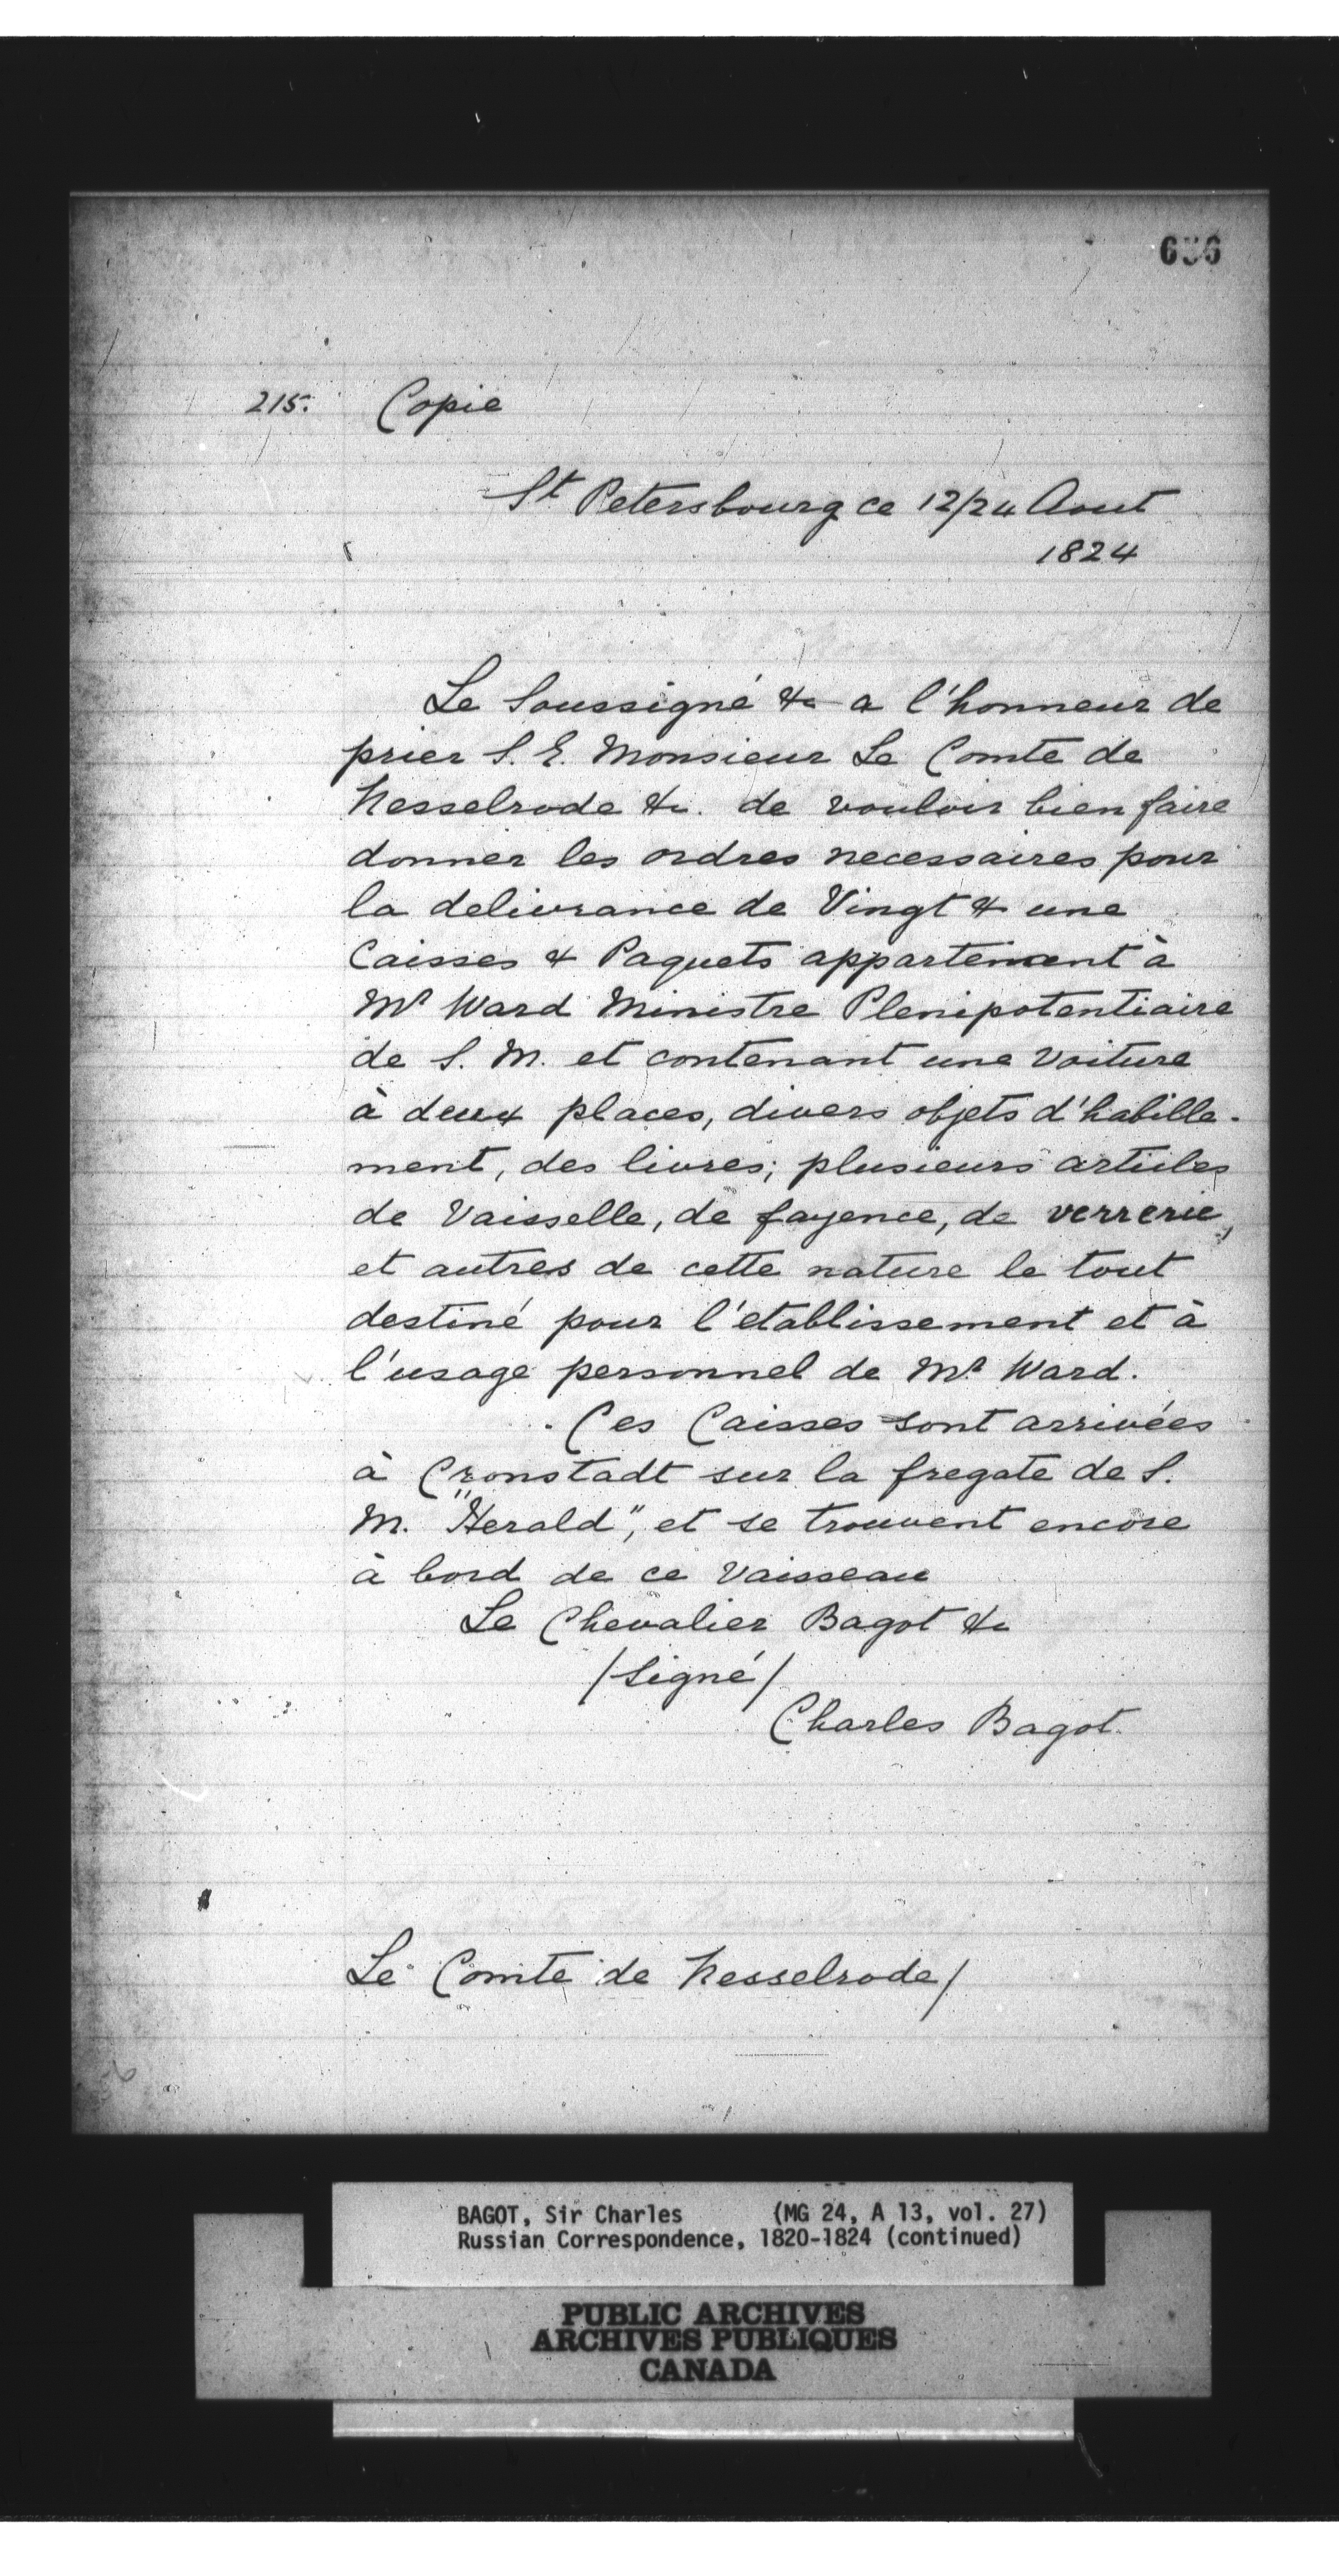 656
215. Copie
St Petersbourg ce 12/24 Aout
1824
Le Soussigné &c a l'honneur de
prier S. E. Monsieur Le Comte de
Nesselrode &c. de vouloir bien faire
donner les ordres necessaires pour
la delivrance de Vingt & une
Caisses & Paquets appartenant à
Mr Ward Ministre Plenipotentiaire
de S. M. et contenant une Voiture
à deux places, divers objets d'habille-
ment, des livres; plusieurs articles
de Vaisselle, de fayence, de verrerie,
et autres de cette nature le tout
destiné pour l'etablissement et à
l'usage personnel de Mr. Ward.
Ces Caisses sont arrivées
à Cronstadt sur la fregate de S.
M. "Herald", et se trouvent encore
à bord de ce Vaisseau
Le Chevalier Bagot &c
/Signé/
Charles Bagot.
Le Comte de Nesselrode/
BAGOT, Sir Charles (MG 24, A 13, vol. 27)
Russian Correspondence, 1820-1824 (continued)
PUBLIC ARCHIVES
ARCHIVES PUBLIQUES
CANADA